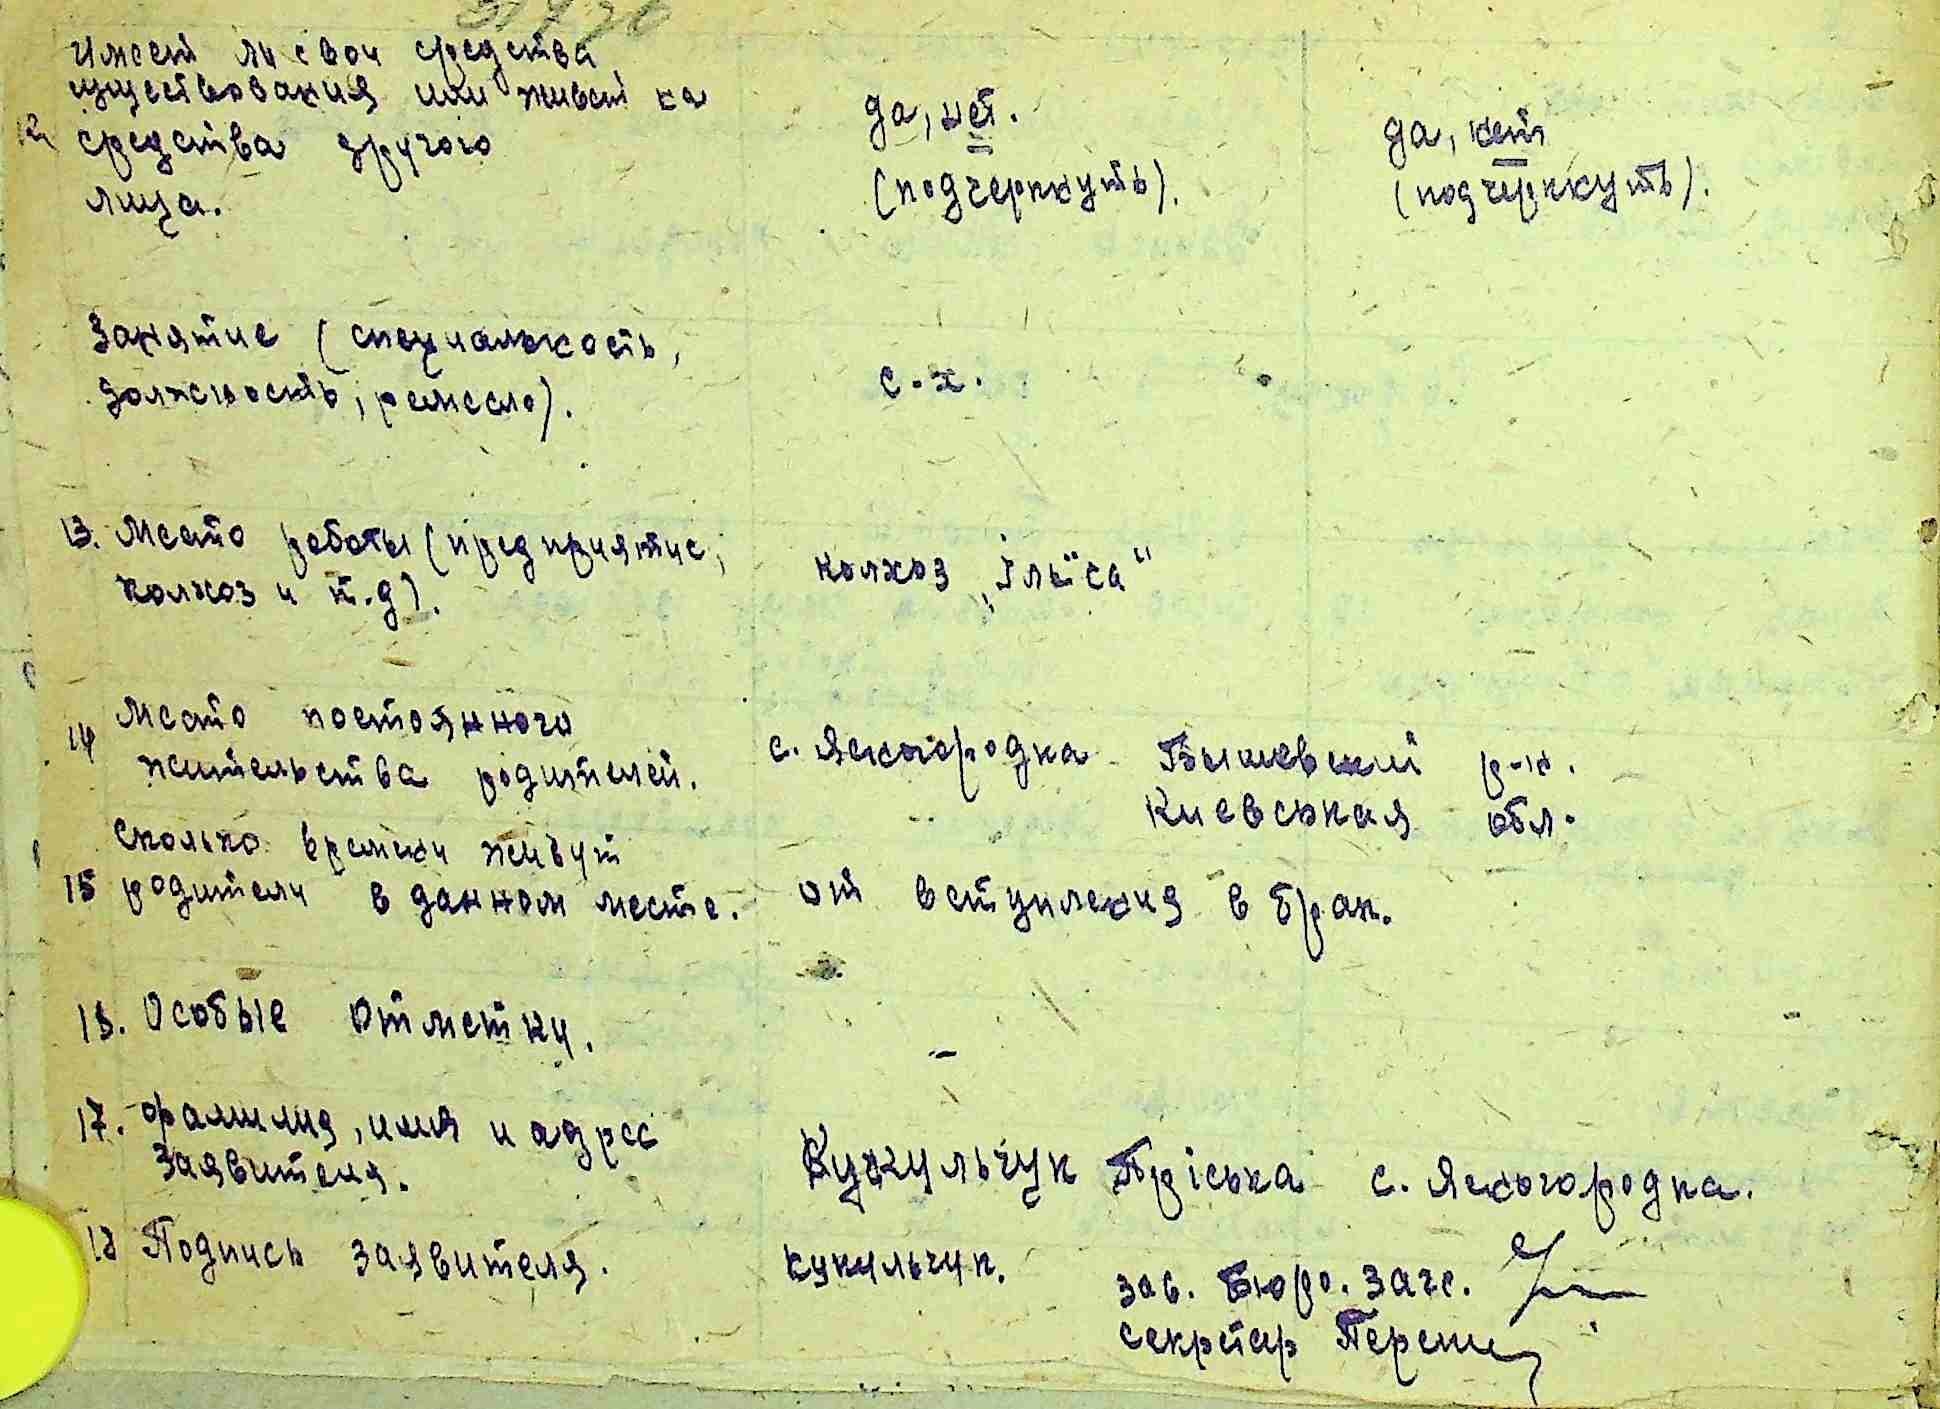 Имеет ли свои средства
существования или живет на
12 средства другого
лица.
да, нет.
(подчеркнуть).
да, нет
(подчеркнуть).
Занятие (специальность,
должность, ремесло).
с.х.
13. Место работы (предприятие,
колхоз и т.д).
колхоз „Ілыіса“
14 Место постоянного
жительства родителей.
с. Ясногородка Бышевский р-н.
Киевськая обл.
Сколько времени живут
15 родители в данном месте.
от вступления в брак.
Особые отметки.
–
17. Фамилия, имя и адрес
заявителя.
Кукульчук Пріська с. Ясногородка.
18 Подпись заявителя.
кукульчук.
зав. Бюро. Загс.
Секретар